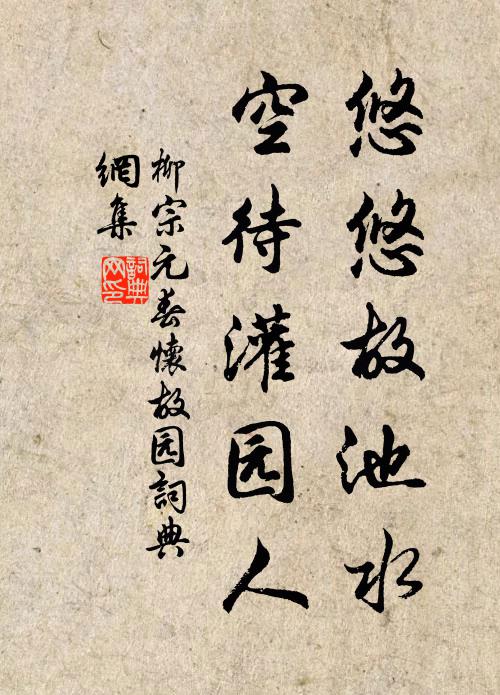 悠悠故池水
空待灌园人
柳宗元春懷故园詞典
網集
詞典
网印